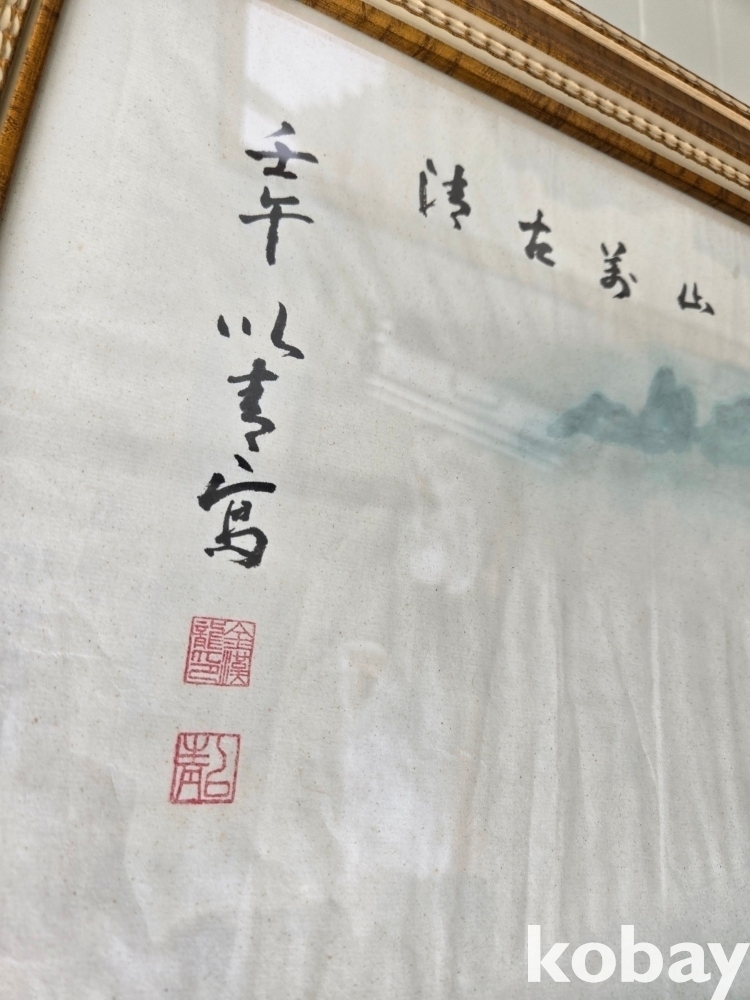 山萬古清
壬午 以青寫
金漢龍印
以青
kobay